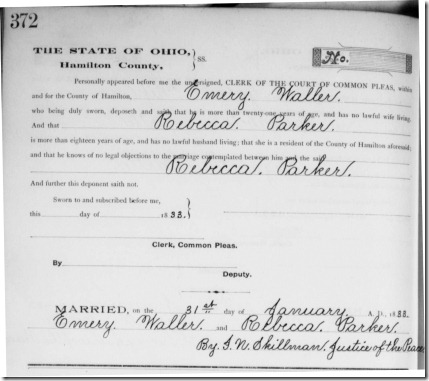 372
THE STATE OF OHIO,
Hamilton County. } SS.
No.
Personally appeared before me the undersigned, CLERK OF THE COURT OF COMMON PLEAS, within
and for the County of Hamilton, Emery. Waller.
who being duly sworn, deposeth and said that he is more than twenty-one years of age, and has no lawful wife living
And that Rebecca. Parker.
is more than eighteen years of age, and has no lawful husband living; that she is a resident of the County of Hamilton aforesaid;
and that he knows of no legal objections to the marriage contemplated between him and the said
Rebecca. Parker.
And further this deponent saith not.
Sworn to and subscribed before me,
this day of 1833.
Clerk, Common Pleas.
By
Deputy.
MARRIED, on the 31st day of January. A. D., 1833.
Emery. Waller. and Rebecca. Parker.
By. Skillman. Justice of the Peace